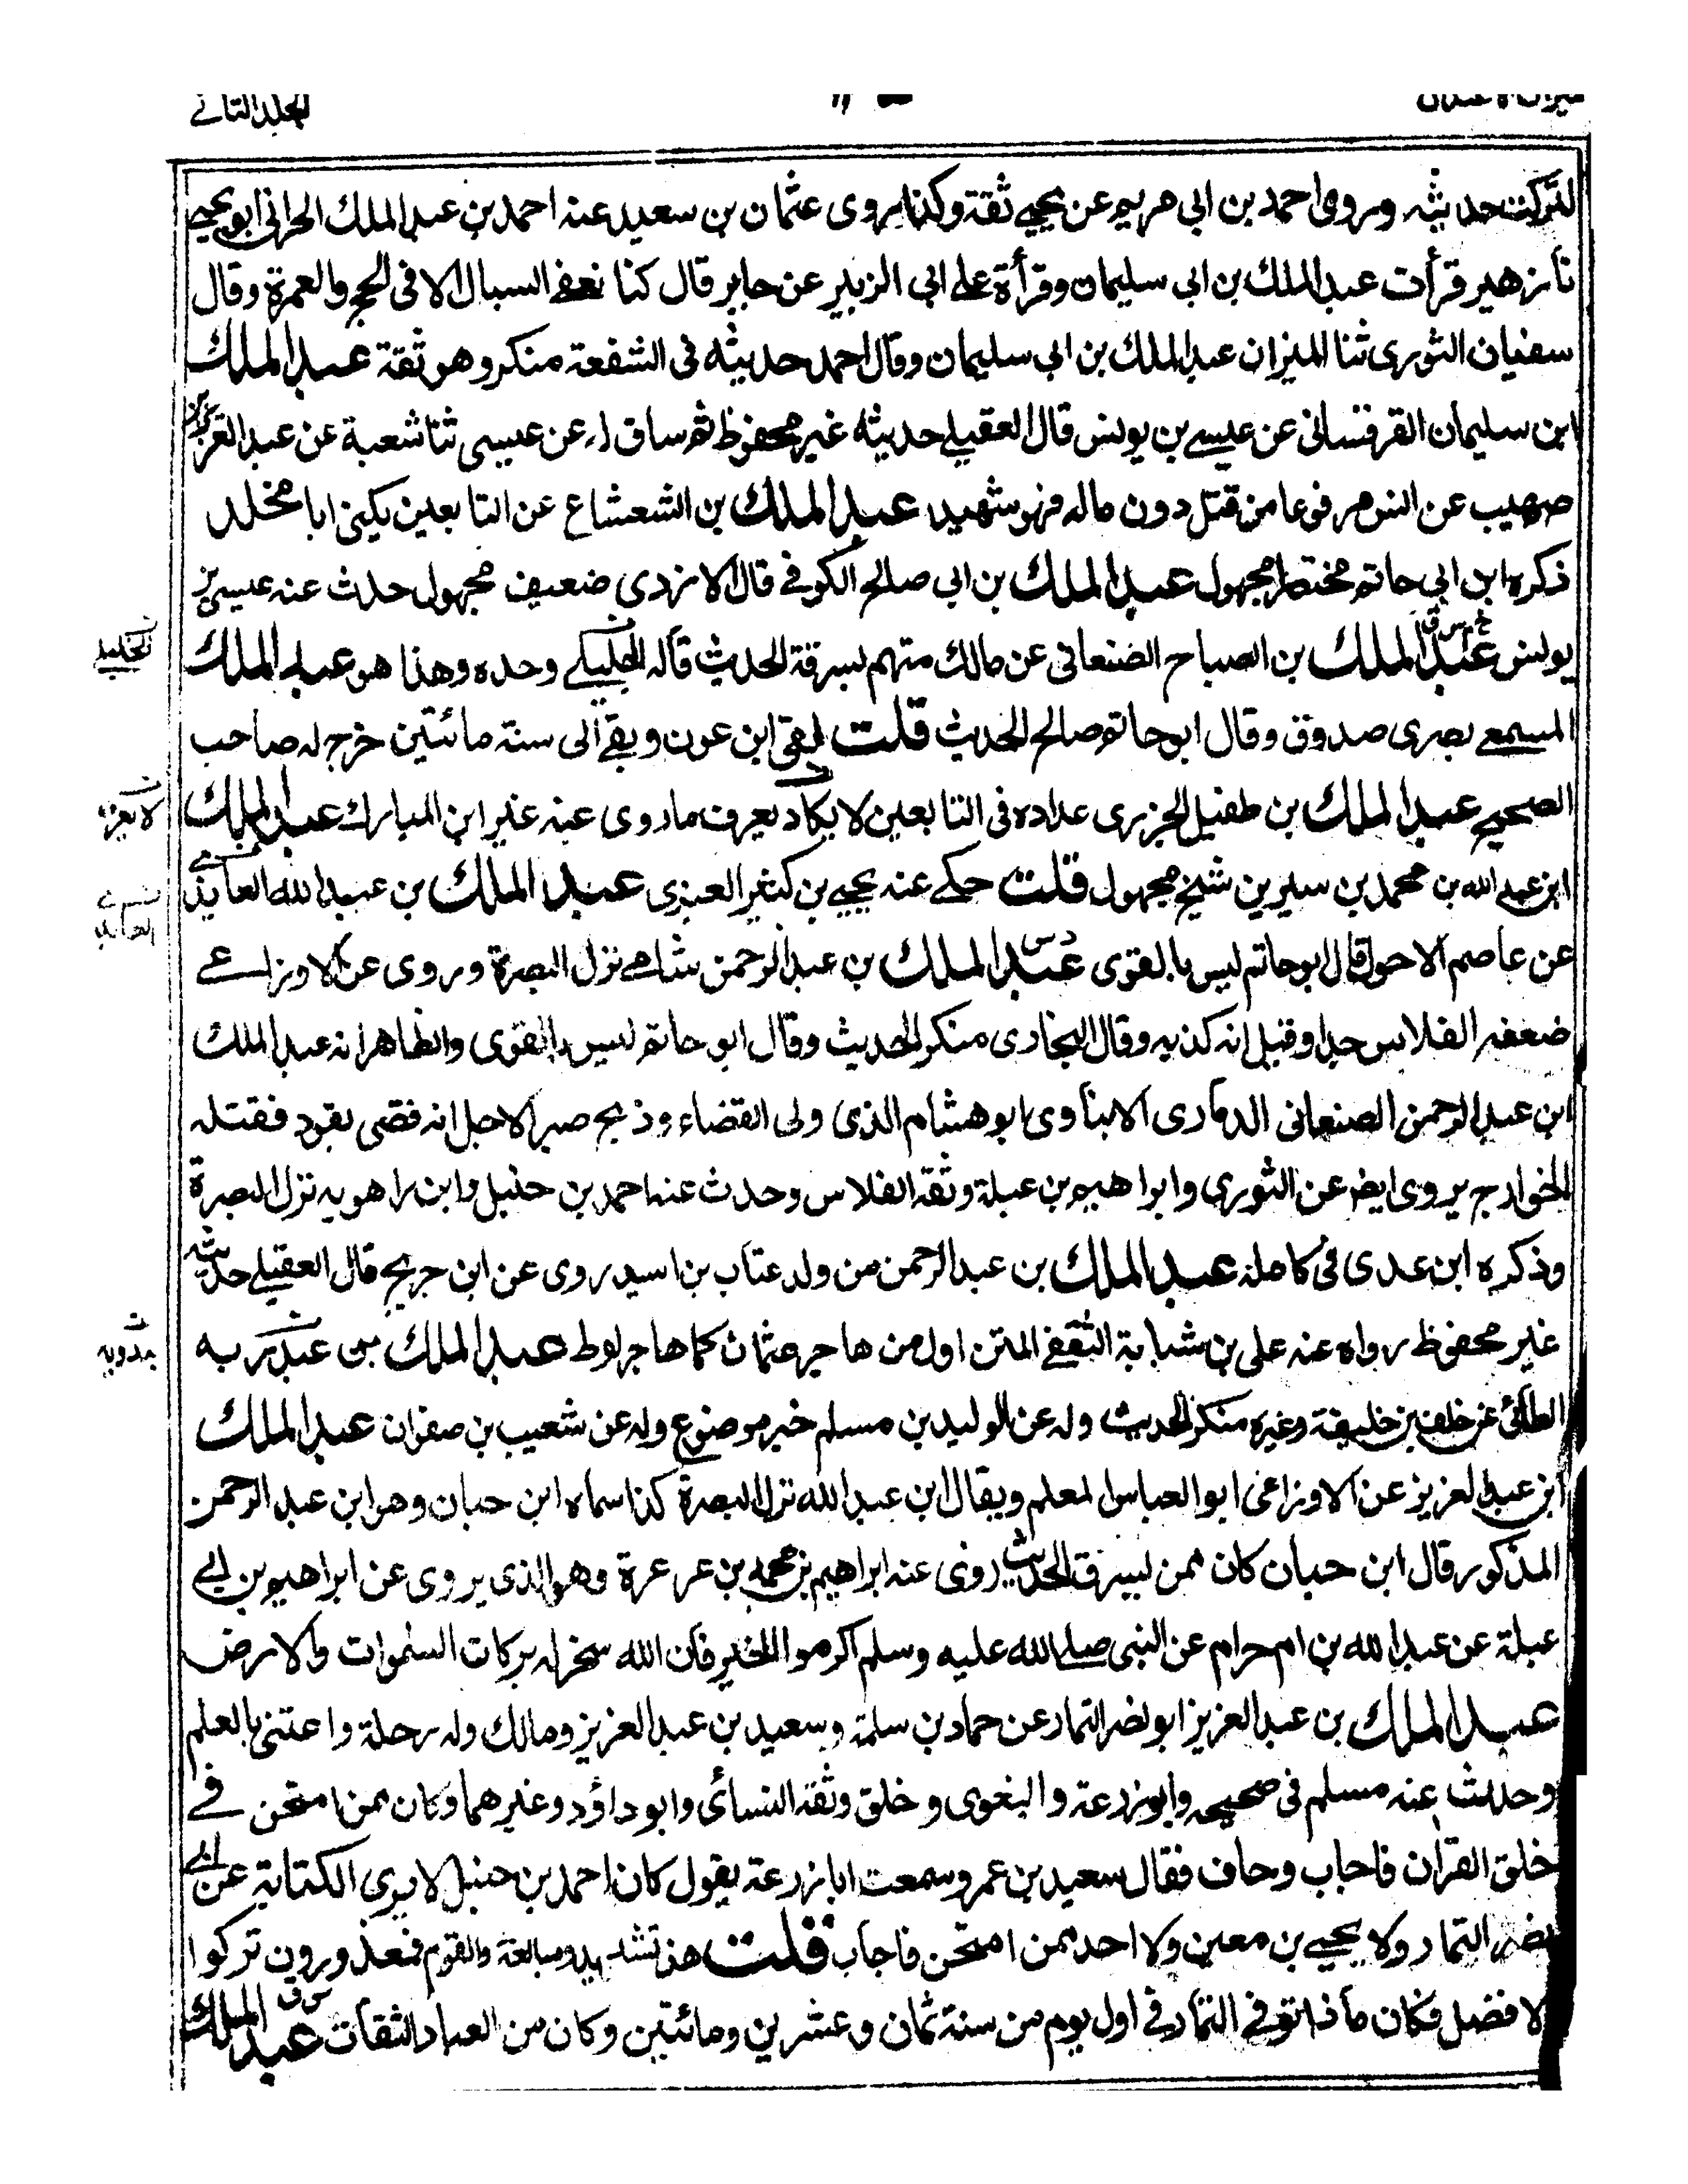 ميزان الاعتدال
المجلد الثانے
لتركت حديثه وروى احمد بن ابى مريم عن يحيے ثقة وكذا روى عثمان بن سعيد عنه احمد بن عبد الملك الحرانى ابو يحيے
نا زهير قرأت عبد الملك بن ابى سليمان وقرأة على ابى الزبير عن جابر قال كنا نعفے السبال الا فى الحج والعمرة وقال
سفيان الثورى ثنا الميزان عبد الملك بن ابى سليمان وقال احمد حديثه فى الشفعة منكر وهو ثقة عبد الملك
ابن سليمان القرقسانى عن عيسے بن يونس قال العقيلے حديثه غير محفوظ ثم ساق له عن عيسى ثنا شعبة عن عبد العزيز بن
صهيب عن انس مرفوعا من قتل دون ماله فهو شهيد عبد الملك بن الشعشاع عن التابعين يكنى ابا مخلد
ذكره ابن ابى حاتم مختصرا مجهول عبد الملك بن ابى صالح الكوفے قال الازدى ضعيف مجهول حدث عنه عيسى بن
يونس عبد الملك بن الصباح الصنعانى عن مالك متهم بسرقة الحديث قاله الخليلے وحده وهذا هو عبد الملك
المسمعے بصرى صدوق وقال ابو حاتم صالح الحديث قلت لقى ابن عون وبقے الى سنة مائتين خرج له صاحب
الصحيح عبد الملك بن طفيل الجزرى عداده فى التابعين لا يكاد يعرف ما روى عنه غير ابن المبارك عبد الملك
ابن عبد الله بن محمد بن سيرين شيخ مجهول قلت حكے عنه يحيے بن كثير العنبرى عبد الملك بن عبد الله العايذى
عن عاصم الاحول قال ابو حاتم ليس بالقوى عبد الملك بن عبد الرحمن شامے نزل البصرة وروى عن الاوزاعے
ضعفه الفلاس جدا وقيل انه كذبه وقال البخارى منكر الحديث وقال ابو حاتم ليس بالقوى والظاهر انه عبد الملك
ابن عبد الرحمن الصنعانى الذمارى الابناوى ابو هشام الذى ولى القضاء وذبح صبرا لاجل انه قضى بقود فقتله
الخوارج يروى ايضا عن الثورى وابراهيم بن عبلة وثقه الفلاس وحدث عنه احمد بن حنبل وابن راهويه نزل البصرة
وذكره ابن عدى فى كامله عبد الملك بن عبد الرحمن من ولد عتاب بن اسيد روى عن ابن جريج قال العقيلے حديثه
غير محفوظ رواه عنه على بن شبابة الثقفے المتن اول من هاجر عثمان كما هاجر لوط عبد الملك بن عبد ربه
الطائى عن خلف بن خليفة وغيره منكر الحديث وله عن الوليد بن مسلم خبر موضوع وله عن شعيب بن صفوان عبد الملك
ابن عبد العزيز عن الاوزاعى ابو العباس المعلم ويقال ابن عبد الله نزل البصرة كذا سماه ابن حبان وهو ابن عبد الرحمن
المذكور قال ابن حبان كان ممن يسرق الحديث روى عنه ابراهيم بن محمد بن عرعرة وهو الذى يروى عن ابراهيم بن ابے
عبلة عن عبد الله بن ام حرام عن النبى صلے الله عليه وسلم اكرموا الخبز فان الله سخر له بركات السموات والارض
عبد الملك بن عبد العزيز ابو نصر التمار عن حماد بن سلمة وسعيد بن عبد العزيز ومالك وله رحلة واعتنى بالعلم
وحدث عنه مسلم فى صحيحه وابو زرعة والبغوى وخلق وثقه النسائى وابو داؤد وغيرهما وكان ممن امتحن فے
خلق القرأن فاجاب وخاف فقال سعيد بن عمرو سمعت ابا زرعة يقول كان احمد بن حنبل لا يرى الكتابة عن ابے
نصر التمار ولا يحيے بن معين ولا احد ممن امتحن فاجاب قلت هذا تشديد ومبالغة والقوم معذورون تركوا
الافضل فكان ماذا توفے التمار فے اول يوم من سنة ثمان وعشرين ومائتين وكان من العباد الثقات عبد الملك